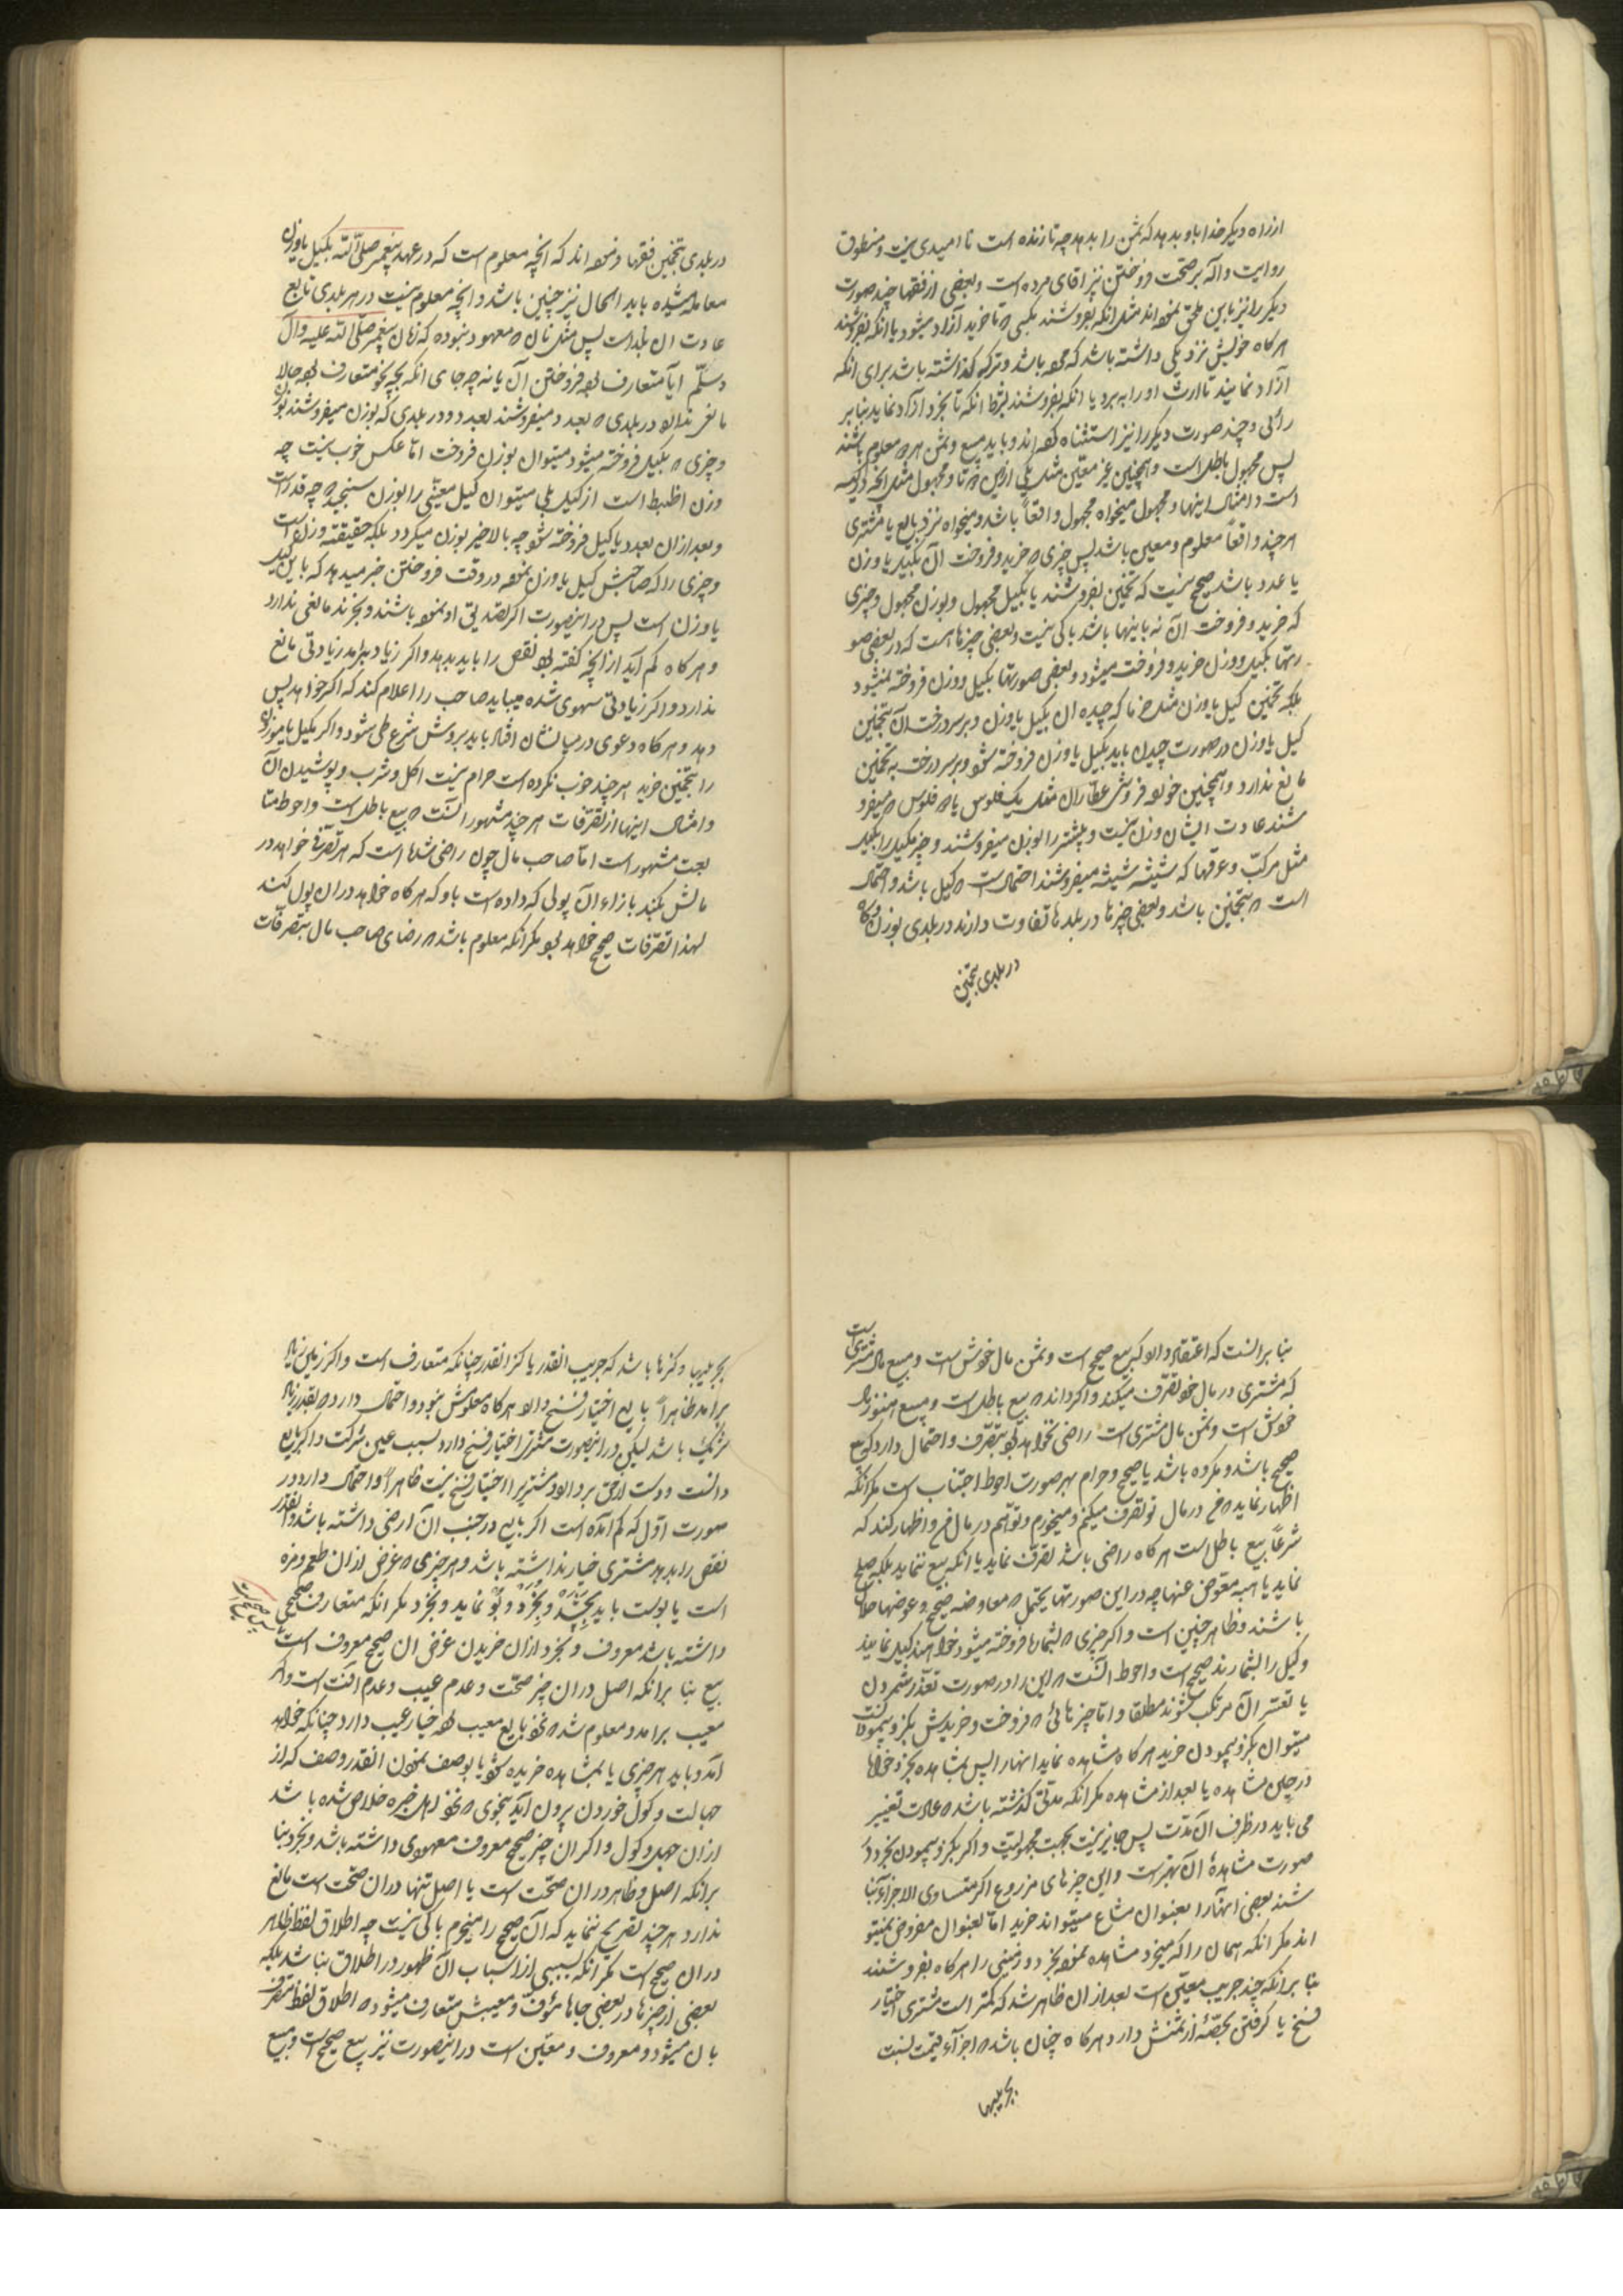 از راه دیکر خدا باو بدهد که ثمن را بدهد چه تا زنده است نا امیدی نیست و منطوق
روایت واله بر صحت فروختن نیز اقای مرده است و بعضی از فقها چند صورت
دیکر را نیز باین ملحق نموده اند مثل انکه بفروشند بکسی که تا خرید آزاد میشود یا انکه بفروشند
هرکاه خویش نزدیکی داشته باشد که مرده باشد و ترکه کذاشته باشد برای انکه
آزاد نمایند تا ارث او را به برد یا انکه بفروشند بشرط انکه تا بخرد آزاد نماید بنا بر
رائی و چند صورت دیکر را نیز استثناء کرده اند و باید مبیع و ثمن هر دو معلوم باشند
پس مجهول باطل است و همچنین غیر معین مثل یکی ازین دو تا و مجهول مثل انچه در کیسه
است و امثال اینها و مجهول میخواه مجهول واقعاً باشد و میخواه نزد بایع یا مشتری
هر چند واقعاً معلوم و معین باشد پس چیزی که خرید و فروخت آن بکیل یا وزن
یا عدد باشد صحیح نیست که بتخمین بفروشند یا بکیل مجهول و بوزن مجهول و چیزی
که خرید و فروخت آن نه باینها باشد باکی نیست و بعضی چیزها هست که در بعضی صو
رتها بکیل و وزن خرید و فروخت میشود و بعضی صورتها بکیل و وزن فروخته نمیشود
بلکه بتخمین کیل یا وزن مثل خرما که چیده ان بکیل یا وزن و بر سر درخت آن بتخمین
کیل یا وزن در صورت چیدن باید بکیل یا وزن فروخته شود و بر سر درخت به تخمین
مانع ندارد و همچنین خورده فروشی عطاران مثل یک فلوس یا دو فلوس که میفرو
شند عادت ایشان وزن نیست و بیشتر را بوزن میفروشند و چیز بکیل را بکیل
مثل مرکب و عرقها که شیشه شیشه میفروشند احتمال است که کیل باشد و احتمال
است که بتخمین باشد و بعضی چیزها در بلدها تفاوت دارند در بلدی بوزن و کاه
در بلدی بتخمین
در بلدی بتخمین فقها فرموده اند که انچه معلوم است که در عهد پیغمبر صلی الله بکیل یا وزن
معامله میشده باید الحال نیز چنین باشد و انچه معلوم نیست در هر بلدی تابع
عادت ان بلد است پس مثل نان که معهود نبوده که زمان پیغمبر صلی الله علیه وآله
وسلم ایا متعارف بود فروختن آن یا نه چه جای انکه بچه نحو متعارف بوده حالا
مانعی ندارد در بلدی که بعدد میفروشند بعدد و در بلدی که بوزن میفروشند بوزن
و چیزی که بکیل فروخته میشود میتوان بوزن فروخت اما عکس خوب نیست چه
وزن اضبط است از کیل بلی میتوان کیل معینی را بوزن سنجید که چه قدر است
و بعد ازان بعدد یا کیل فروخته شود چه بالاخره بوزن میکردد بلکه حقیقته وزن است
و چیزی را که صاحبش کیل یا وزن نموده در وقت فروختن خبر میدهد که باین کیل
یا وزن است پس در اینصورت اکر تصدیق او نموده باشند و بخرند مانعی ندارد
و هرکاه کم آید از انچه کفته بود نقص را باید بدهد و اکر زیاد برامد زیادتی مانع
ندارد و اکر زیادتی سهوی شده میباید صاحب را اعلام کند که اکر خواهد پس
دهد و هرکاه دعوی در میانشان افتد باید بروش شرع طی شود و اکر مکیل یا موزون
را بتخمین خرید هر چند خوب نکرده است حرام نیست اکل و شرب و پوشیدن آن
و امثال اینها از تصرفات هر چند مشهور انست که بیع باطل است و احوط متا
بعت مشهور است اما صاحب مال چون راضی شده است که هر تصرفی خواهد در
مالش بکند بازاء آن پولی که داده است باو که هرکاه خواهد دران پول کند
لهذا تصرفات صحیح خواهد بود مکر انکه معلوم باشد که رضای صاحب مال بتصرفات
بنا بر انست که اعتقاد دارد که بیع صحیح است و ثمن مال خودش است و مبیع مال مشتری است
که مشتری در مال خود تصرف میکند و اکر داند که بیع باطل است و مبیع هنوز مال
خودش است و ثمن مال مشتری است راضی نخواهد بود بتصرف و احتمال دارد که بیع
صحیح باشد و مکروه باشد یا صحیح و حرام بهر صورت احوط اجتناب است مکر انکه
اظهار نماید که من در مال تو تصرف میکنم و میخورم و تو هم در مال من و اظهار کند که
شرعاً بیع باطل است هرکاه راضی باشد تصرف نماید یا انکه بیع ننماید بلکه صلح
نماید یا هبه معوض عنها چه در این صورتها یحتمل که معاوضه صحیح و عوضها حلال
باشند و ظاهر چنین است و اکر چیزی که بشمارها فروخته میشود خواهند کیل نمایند
و کیل را بشمارند صحیح است و احوط انست که این را در صورت تعذر شمردن
یا تعسر آن مرتکب شوند نه مطلقا و اما چیزهائی که فروخت و خریدش بکز و پیمودن است
میتوان بکز و پیمودن خرید هرکاه مشاهده نماید انها را پس بمشاهده بخرد خواه
در حین مشاهده یا بعد از مشاهده مکر انکه مدتی کذشته باشد که عادت تغییر
می یابد در ظرف آن مدت پس جایز نیست بجهت مجهولیت و اکر بکز و پیمودن بخرد در
صورت مشاهده آن بهتر است و این چیزهای مزروع اکر متساوی الاجزاء با
شند بعضی انها را بعنوان مشاع میتواند خرید اما بعنوان مفروض نمیتو
اند مکر انکه همان را که میخرد مشاهده نموده بخرد و زمینی را هرکاه بفروشند
بنا بر انکه چند جریب معین است بعد ازان ظاهر شد که کمتر است مشتری اختیار
فسخ یا کرفتن بحصّه از ثمنش دارد هرکاه چنان باشد که اجزاء قیمت نسبت
بجریبها
بجریبها و کزها باشد که جریب انقدر یا کز انقدر چنانکه متعارف است و اکر زمین زیاد
برامد ظاهراً بایع اختیار فسخ دارد هرکاه معلومش نبود و احتمال دارد که بقدر زیاد
شریک باشد لیکن در اینصورت مشتری اختیار فسخ دارد بسبب عیب شرکت و اکر بایع
دانست و دست از حق بردارد مشتری را اختیار فسخ نیست ظاهراً و احتمال دارد در
صورت اول که کم امده است اکر بایع در جنب ان ارضی داشته باشد و بقدر
نقص را بدهد مشتری خیار نداشته باشد و هر چیزی که غرض ازان طعم و مزه
است یا بوست باید بچشد و بخرد و بو نماید و بخرد مکر انکه متعارف صحیحی
داشته باشد معروف و بخرد ازان خریدن غرض ان صحیح معروف است
بیع بنا بر انکه اصل دران چیز صحت و عدم عیب و عدم افت است و اکر
معیب برامد و معلوم شد که نزد بایع معیب بود خیار عیب دارد چنانکه خواهد
امد و باید هر چیزی یا بمشاهده خریده شود یا بوصف نمودن انقدر وصف که از
جهالت و کول خوردن بیرون آید بنحوی که نزد اهل خبره خلاص شده باشد
ازان جهل و کول و اکر ان چیز صحیح معروف معهودی داشته باشد و بخرد بنا
بر انکه اصل و ظاهر دران صحت است یا اصل تنها دران صحت است مانع
ندارد هر چند تصریح ننماید که آن صحیح را میخرم باکی نیست چه اطلاق لفظ ظاهر
دران صحیح است مکر انکه بسببی از اسباب آن ظهور در اطلاق نباشد بلکه
بعضی از چیزها در بعضی جاها مؤف و معیبش متعارف میشود که اطلاق لفظ منصرف
بان میشود و معروف و معین است در اینصورت نیز بیع صحیح است و مبیع